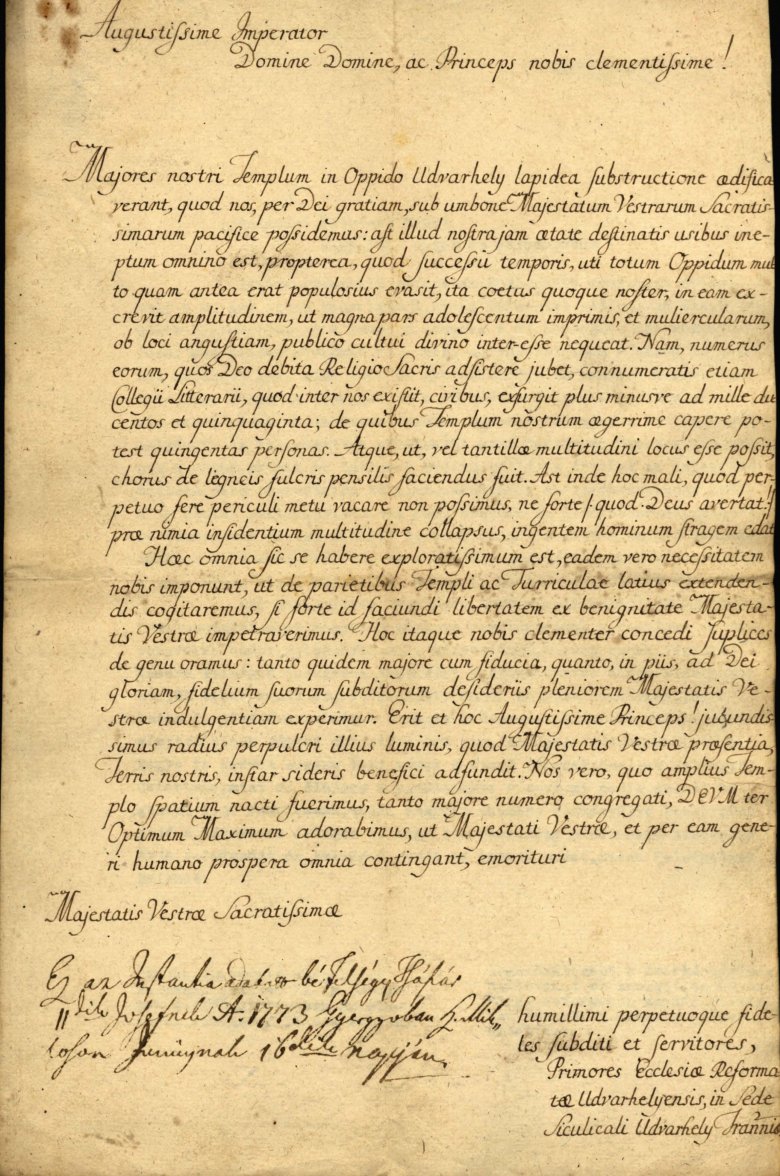 Augustissime Imperator
Domine Domine, ac Princeps nobis clementissime!
Majores nostri Templum in Oppido Udvarhely lapidea substructione ædifica
verant, quod nos, per Dei gratiam, sub umbone Majestatum Vestrarum Sacratis-
simarum pacifice possidemus: ast illud nostra jam ætate destinatis usibus ine-
ptum omnino est, propterea, quod successu temporis, uti totum Oppidum mul
to quam antea erat populosius evasit, ita coetus quoque noster, in eam ex-
crevit amplitudinem, ut magna pars adolescentum imprimis, et muliercularum,
ob loci angustiam, publico cultui divino inter-esse nequeat. Nam, numerus
eorum, quos Deo debita Religio Sacris adsistere jubet, connumeratis etiam
Collegii Litterarii, quod inter nos existit, civibus, exsurgit plus minusve ad mille du
centos et quinquaginta; de quibus Templum nostrum ægerrime capere po-
test quingentas personas. Atque, ut, vel tantillæ multitudini locus esse possit,
chorus de legneis fulcris pensilis faciendus fuit. Ast inde hoc mali, quod per-
petuo fere periculi metu vacare non possimus, ne forte /: quod Deus avertat :/
præ nimia insidentium multitudine collapsus, ingentem hominum stragem edat
Hæc omnia sic se habere exploratissimum est, eadem vero necessitatem
nobis imponunt, ut de parietibus Templi ac Turriculae latius extenden-
dis cogitaremus, si forte id faciundi libertatem ex benignitate Majesta-
tis Vestræ impetraverimus. Hoc itaque nobis clementer concedi suplices
de genu oramus: tanto quidem majore cum fiducia, quanto, in piis, ad Dei
gloriam, fidelium suorum subditorum desideriis pleniorem Majestatis Ve-
stræ indulgentiam experimur. Erit et hoc Augustissime Princeps! jucundis
simus radius perpulcri illius luminis, quod Majestatis Vestræ præsentia,
Terris nostris, instar sideris benefici adfundit. Nos vero, quo amplius Tem-
plo spatium nacti fuerimus, tanto majore numero congregati, DEVM ter
Optimum Maximum adorabimus, ut Majestati Vestræ, et per eam gene-
ri humano prospera omnia contingant, emorituri
Majestatis Vestræ Sacratissimæ
Ez az Instantia adatott bé Felséges Tsászár
II dik Josefnek A. 1773 Gyergyoban Sz. Mik„
loson Juniusnak 16dik napján
humillimi perpetuoque fide-
les subditi et servitores,
Primores Ecclesiæ Reforma
tæ Udvarhelyensis, in Sede
Siculicali Udvarhely Trannis